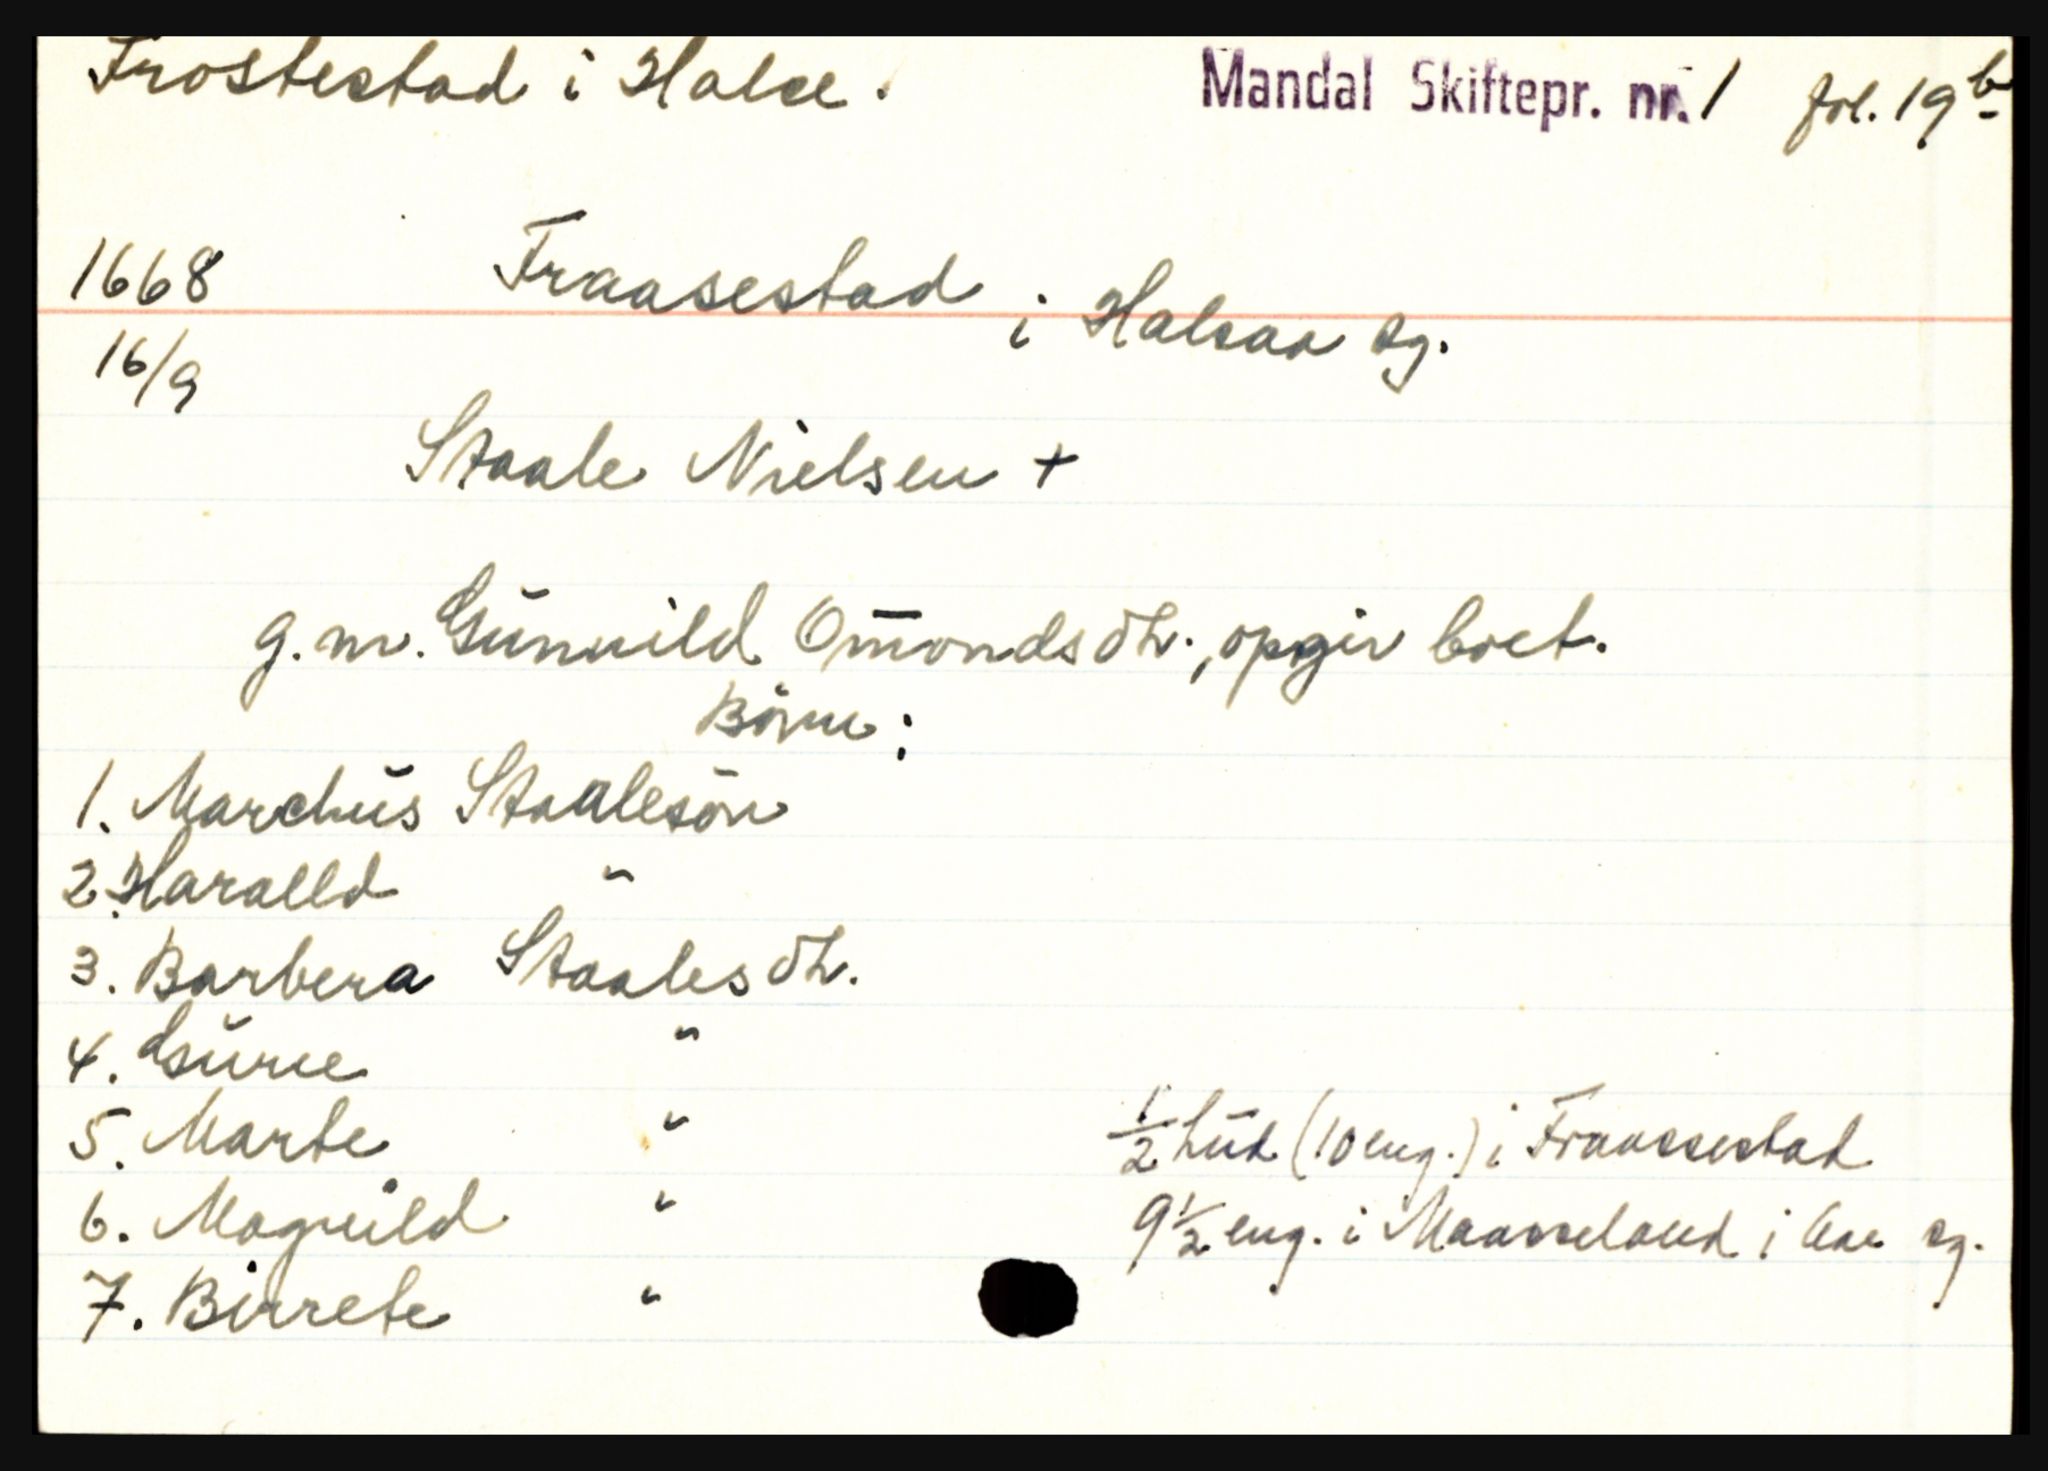 Frostestad i Halse. Mandal Skiftepr. nr. 1 fol. 19b
1668 Fraasestad i Halsaa sg.
16/9
Staale Nielsen +
g. m. Gunnild Omondsdtr., opgir boet.
Börn:
1. Marchus Staalesön
2. Haralld "
3. Barbera Staalesdtr.
4. Gurie "
5. Marte " 1/2 hud (10 eng.) i Fraassestad
6. Magnild " 9 1/2 eng. i Maasseland i Aae sg.
7. Birrete "